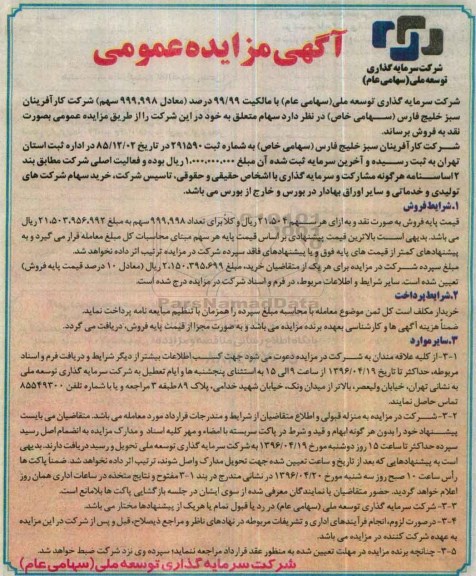 آگهی مزایده عمومی
شرکت سرمایه گذاری
توسعه ملی (سهامی عام)
شرکت سرمایه گذاری توسعه ملی(سهامی عام) با مالکیت ۹۹/۹۹ درصد (معادل ۹۹۹,۹۹۸ سهم) شرکت کارآفرینان
سبز خلیج فارس (سهامی خاص) در نظر دارد سهام متعلق به خود در این شرکت را از طریق مزایده عمومی بصورت
نقد به فروش برساند.
شرکت کارآفرینان سبز خلیج فارس (سهامی خاص) به شماره ثبت ۲۹۱۵۹۰ در تاریخ ۸۵/۱۲/۰۲ در اداره ثبت استان
تهران به ثبت رسیده و آخرین سرمایه ثبت شده آن مبلغ ۱,۰۰۰,۰۰۰,۰۰۰ ریال بوده و فعالیت اصلی شرکت مطابق بند
۲ اساسنامه هرگونه مشارکت و سرمایه گذاری با اشخاص حقیقی و حقوقی، تاسیس شرکت، خرید سهام شرکت های
تولیدی و خدماتی و سایر اوراق بهادار در بورس و خارج از بورس می باشد.
۱.شرایط فروش
قیمت پایه فروش به صورت نقد و به ازای هر سهم ۲۱,۵۰۴ ریال و کلاً برای تعداد ۹۹۹,۹۹۸ سهم به مبلغ ۲۱,۵۰۳,۹۵۶,۹۹۲ ریال
می باشد. بدیهی است بالاترین قیمت پیشنهادی بر اساس قیمت پایه هر سهم مبنای محاسبات کل مبلغ معامله قرار می گیرد و به
پیشنهادهای کمتر از قیمت های پایه فوق و یا پیشنهادهای فاقد سپرده شرکت در مزایده ترتیب اثر داده نخواهد شد.
مبلغ سپرده شرکت در مزایده برای هر یک از متقاضیان خرید، مبلغ ۲,۱۵۰,۳۹۵,۶۹۹ ریال (معادل ۱۰ درصد قیمت پایه فروش)
تعیین شده است. سایر شرایط و اطلاعات مربوط، در فرم و اسناد شرکت در مزایده درج شده است.
۲.شرایط پرداخت
خریدار مکلف است کل ثمن موضوع معامله با محاسبه مبلغ سپرده را همزمان با تنظیم مبایعه نامه پرداخت نماید.
ضمناً هزینه آگهی ها و کارشناسی بعهده برنده مزایده می باشد و به صورت مجزا از قیمت پایه فروش، دریافت می گردد.
۳.سایر موارد
۳-۱- از کلیه علاقه مندان به شرکت در مزایده دعوت می شود جهت کسب اطلاعات بیشتر از دیگر شرایط و دریافت فرم و اسناد
مربوطه، حداکثر تا تاریخ ۱۳۹۶/۰۴/۱۹ از ساعت ۹ الی ۱۵ به استثنای پنجشنبه ها و ایام تعطیل به شرکت سرمایه گذاری توسعه ملی
به نشانی تهران، خیابان ولیعصر، بالاتر از میدان ونک، خیابان شهید خدامی، پلاک ۸۹ طبقه ۳ مراجعه و یا با شماره تلفن ۸۵۵۴۹۳۰۰
تماس حاصل نمایند.
۳-۲- شرکت در مزایده به منزله قبولی و اطلاع متقاضیان از شرایط و مندرجات قرارداد مورد معامله می باشد. متقاضیان می بایست
پیشنهاد خود را بدون هر گونه ابهام و قید و شرط در پاکت سربسته با امضاء و مهر کلیه اسناد و مدارک مزایده به انضمام اصل رسید
سپرده حداکثر تا ساعت ۱۵ روز دوشنبه مورخ ۱۳۹۶/۰۴/۱۹ به شرکت سرمایه گذاری توسعه ملی تحویل و رسید دریافت دارند. بدیهی
است به پیشنهادهایی که بعد از تاریخ و ساعت تعیین شده جهت تحویل مدارک واصل شوند، ترتیب اثر داده نخواهد شد. ضمناً پاکت ها
رأس ساعت ۱۰ صبح روز سه شنبه مورخ ۱۳۹۶/۰۴/۲۰ در نشانی مندرج در بند ۳-۱ مفتوح و نتایج متخذه در ساعات اداری همان روز
اعلام خواهد گردید. حضور متقاضیان یا نمایندگان معرفی شده از سوی ایشان در جلسه بازگشایی پاکت ها بلامانع است.
۳-۳- شرکت سرمایه گذاری توسعه ملی (سهامی عام) در رد یا قبول تمام یا هریک از پیشنهادها مختار می باشد.
۳-۴- درصورت لزوم، انجام فرآیندهای اداری و تشریفات مربوطه در نهادهای ناظر و مراجع ذیصلاح، قبل و پس از شرکت در این مزایده
به عهده شرکت کننده در مزایده می باشد.
۳-۵- چنانچه برنده مزایده در مهلت تعیین شده به منظور عقد قرارداد مراجعه ننماید؛ سپرده وی نزد شرکت ضبط خواهد شد.
شرکت سرمایه گذاری توسعه ملی (سهامی عام)